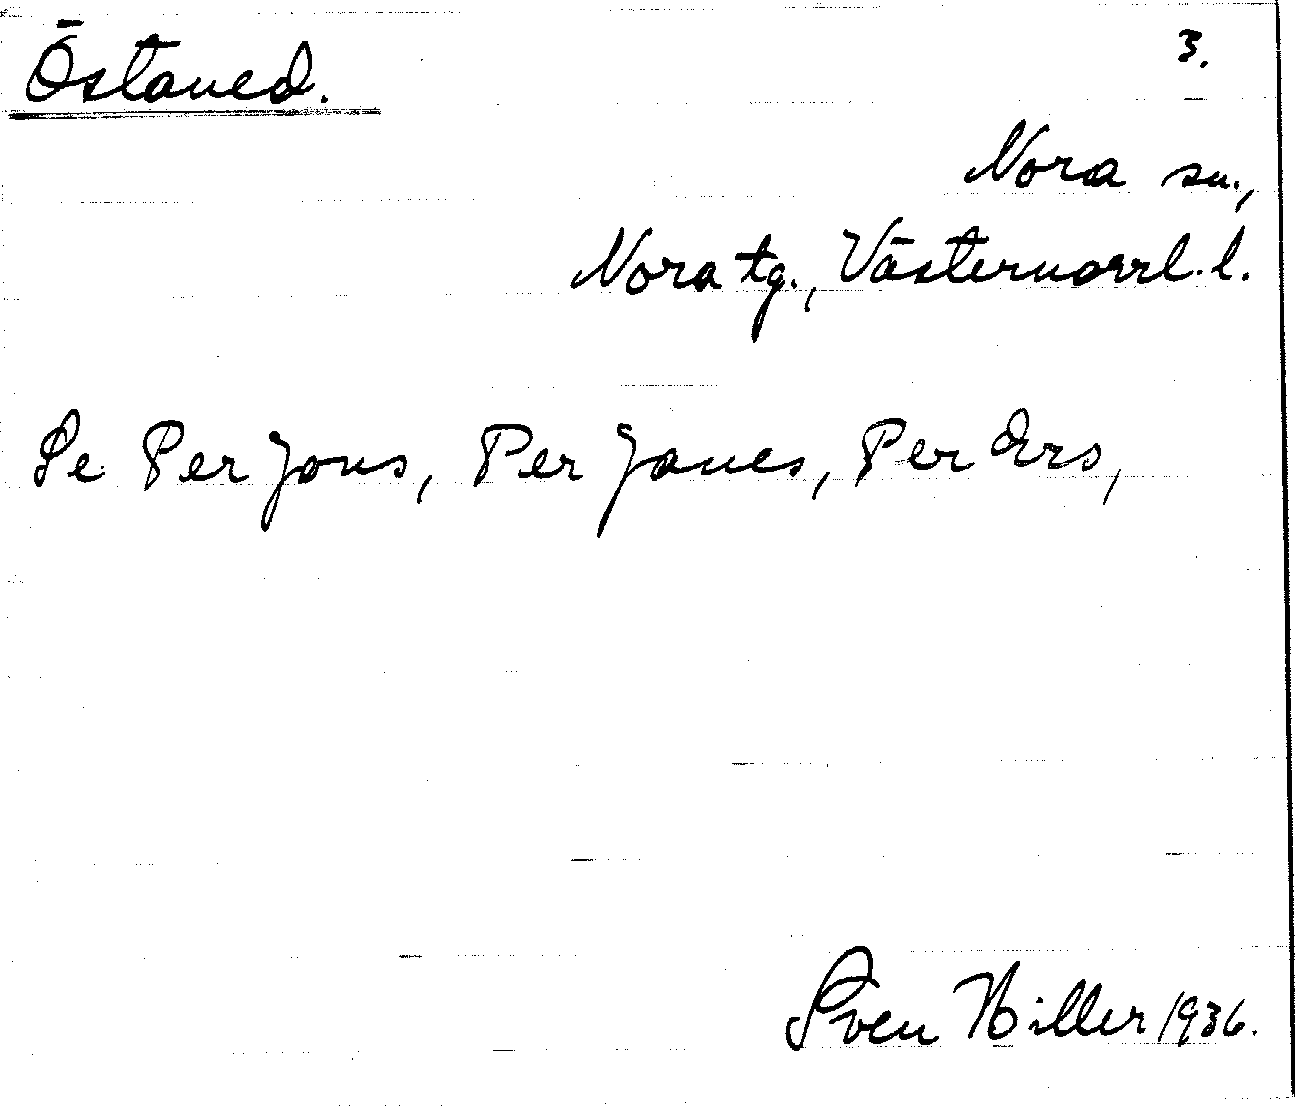 Östaned.
3.
Nora sn.,
Nora tg., Västernorrl. l.
Se Per Jons, Per Janes, Per Ers,
Sven Hiller 1936.